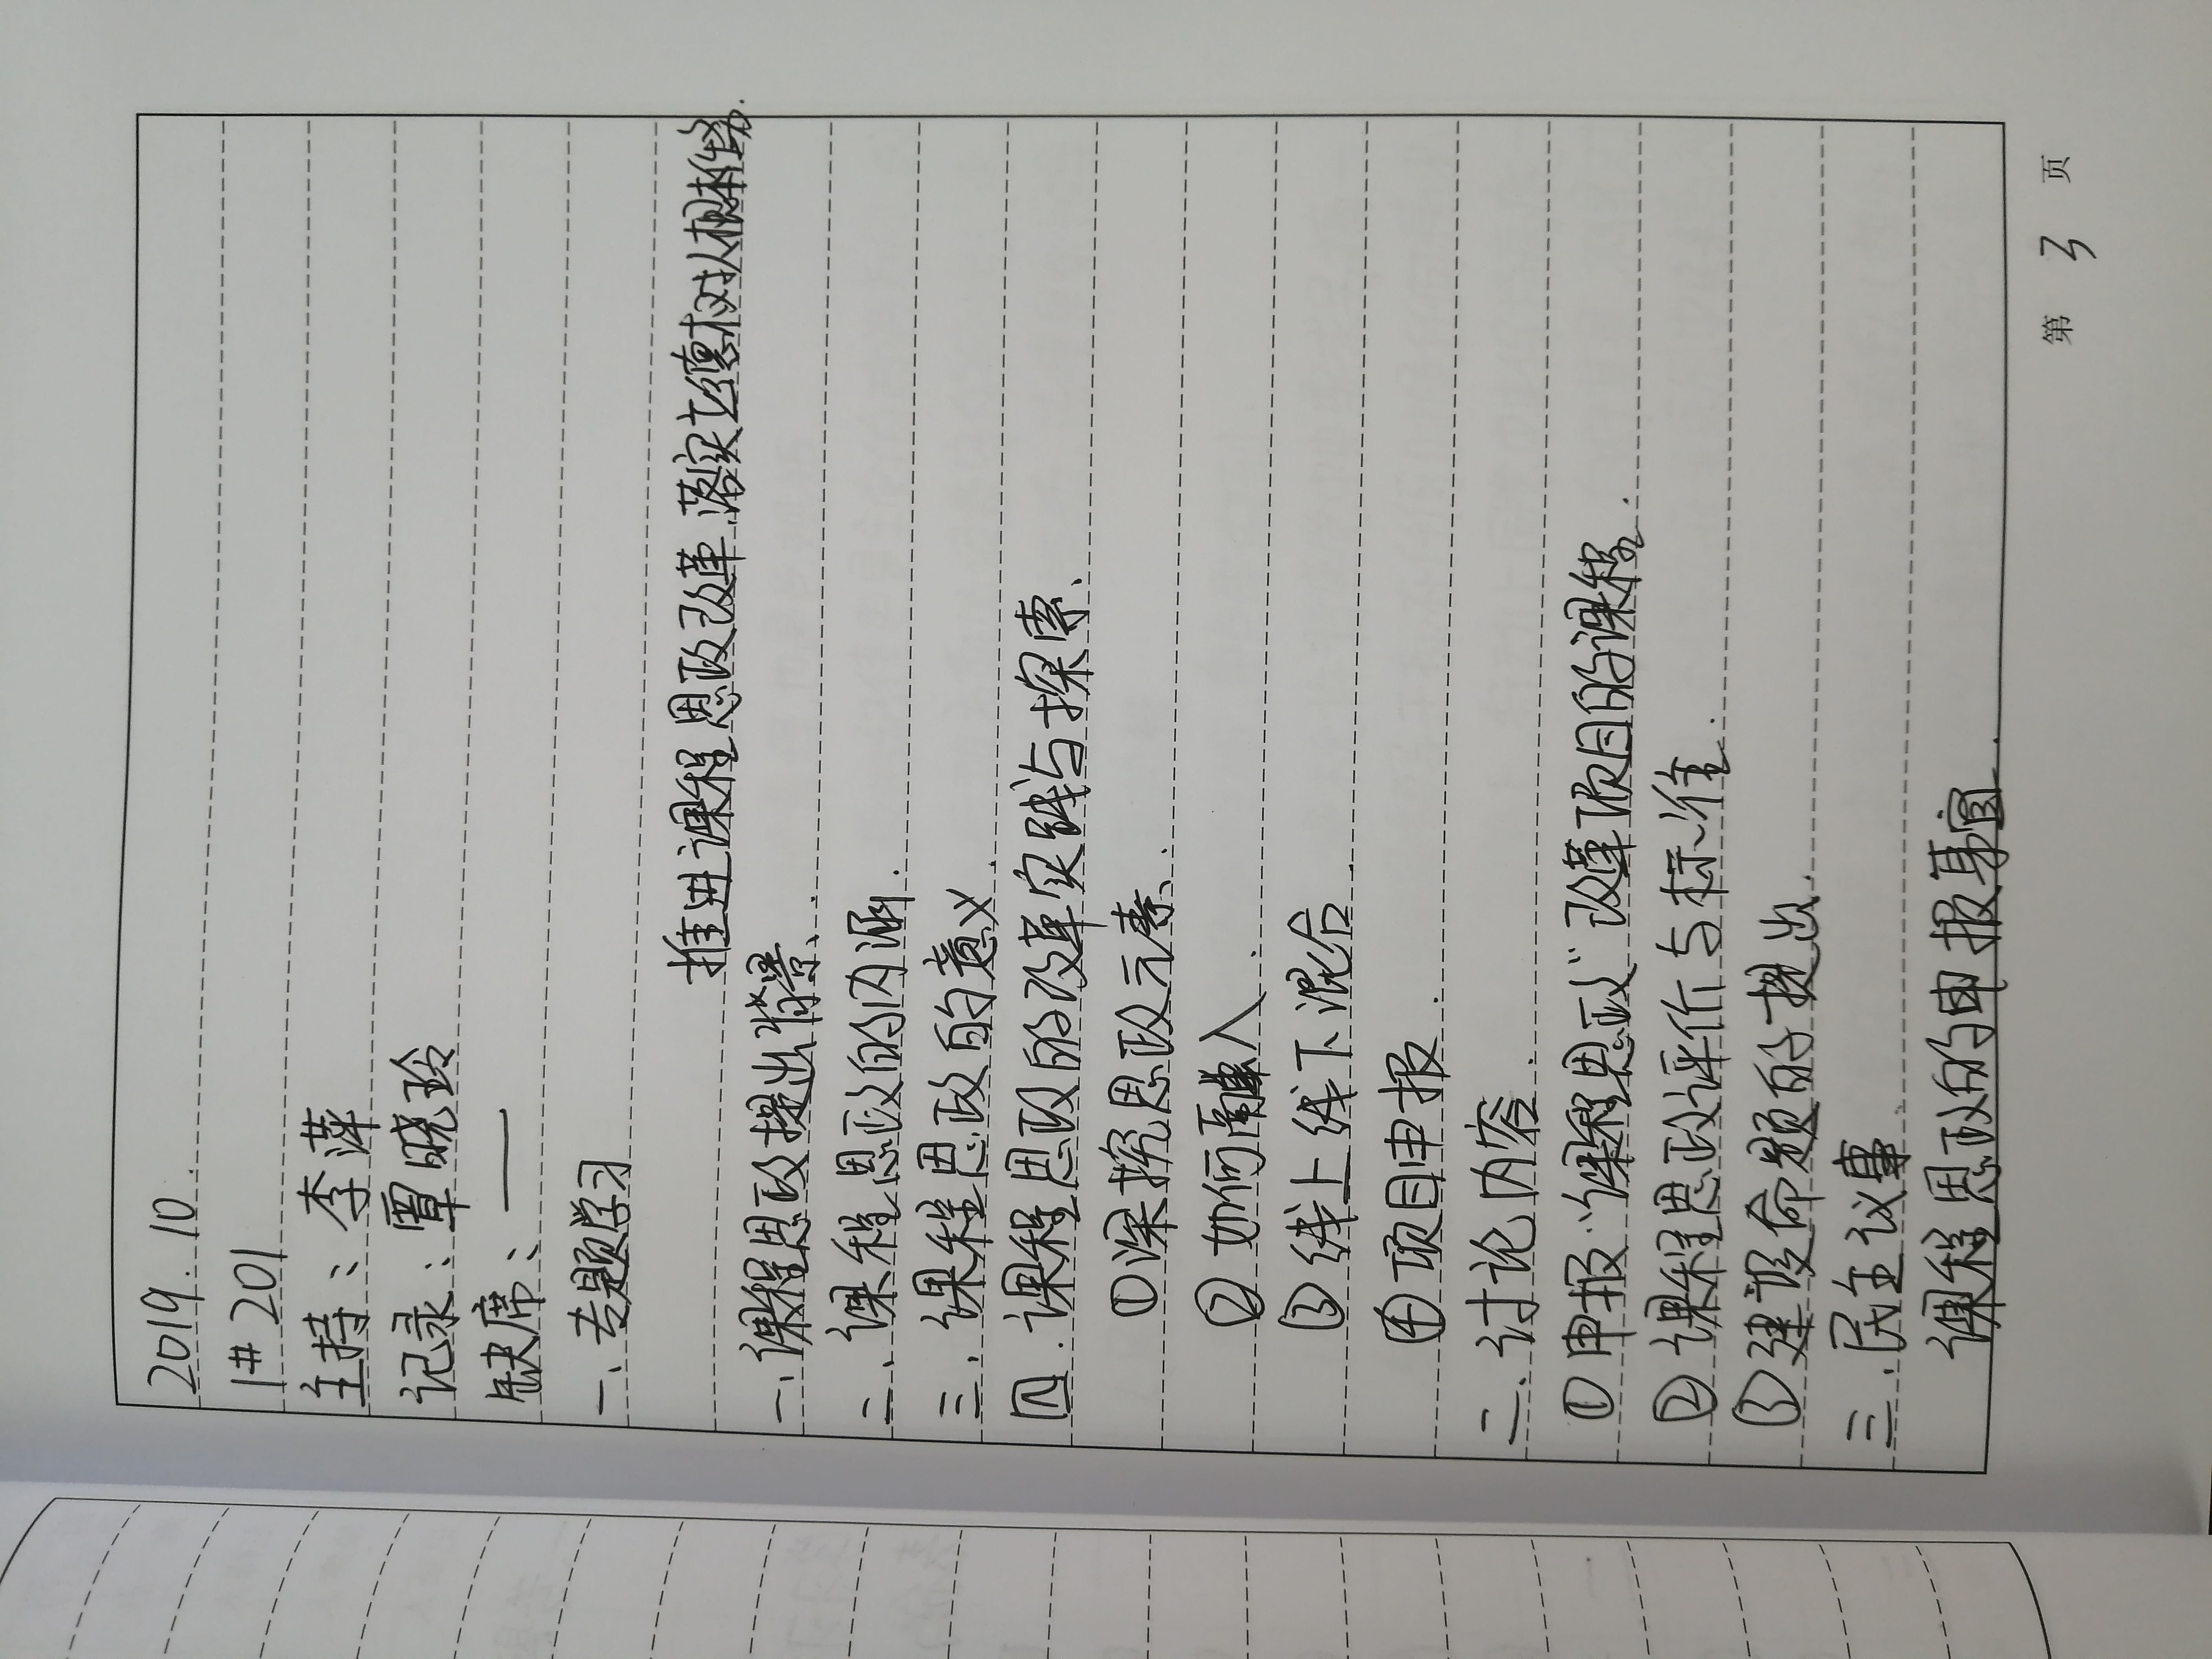 2019.10.
1# 201
主持：李萍
记录：覃晓玲
缺席：——
一、专题学习
推进课程思政改革.落实立德树人根本任务.
一、课程思政提出背景、
二、课程思政的内涵.
三、课程思政的意义.
四.课程思政的改革实践与探索、
①深挖思政元素.
②如何融入.
③线上线下混合.
④项目申报.
二.讨论内容.
①申报“课程思政”改革项目的课程.
②课程思政评价与标准.
③建设命题的提出.
三.民主议事.
课程思政的申报事宜.
第 3 页